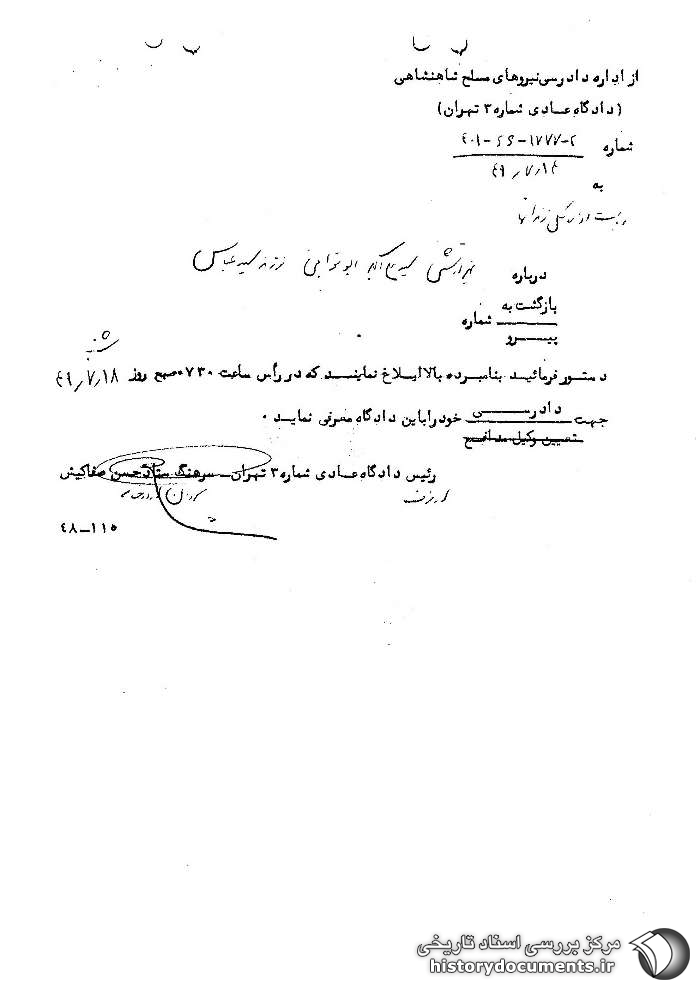 از اداره دادرسی نیروهای مسلح شاهنشاهی
(دادگاه عادی شماره ۳ تهران)
شماره
۴۹٫۷٫۱۴
به
ریاست اداره کل زندانها
درباره غیر ارتشی سید علی اکبر ابوترابی فرزند سید عباس
بازگشت به
پیرو
شماره
شنبه
دستور فرمائید بنامبرده بالا ابلاغ نمایند که در رأس ساعت ۰۷۳۰ صبح روز ۴۹٫۷٫۱۸
جهت دادرسی خود را باین دادگاه معرفی نماید ۰
تعیین وکیل مدافع
رئیس دادگاه عادی شماره ۳ تهران ـ سرهنگ ستاد حسن صفاکیش
از طرف
۴۸ــ۱۱۵
مرکز بررسی اسناد تاریخی
historydocuments.ir